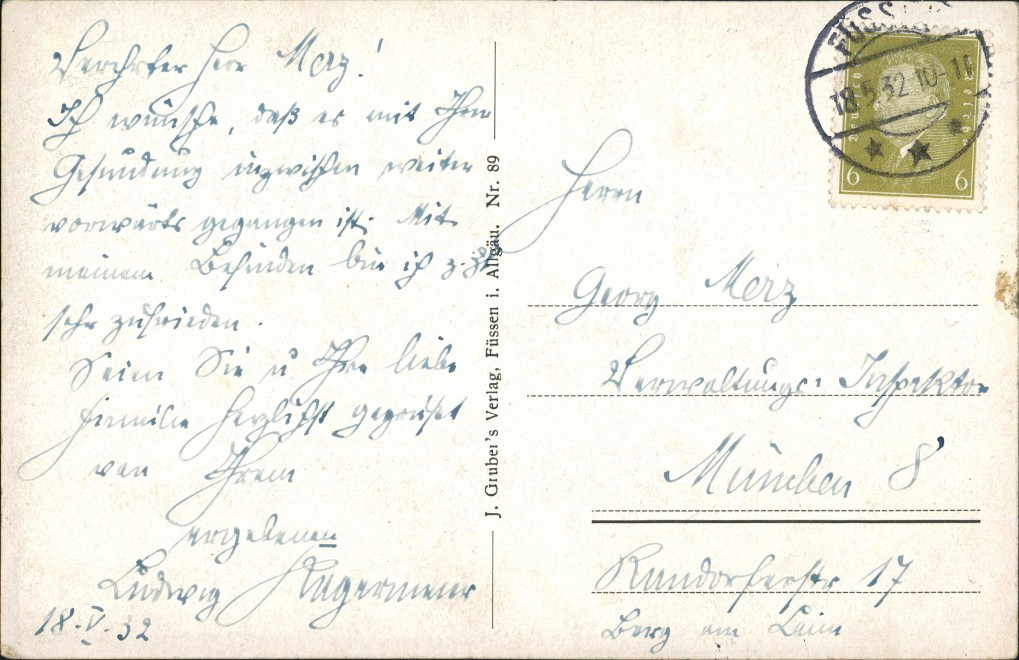 Verehrter Herr Merz!
Ich wünsche, daß es mit Ihrer
Gesundung inzwischen weiter
vorwärts gegangen ist. Mit
meinem Befinden bin ich z. Zt.
sehr zufrieden.
Seien Sie u Ihre liebe
Familie herzlichst gegrüßt
von Ihrem
ergebenen
Ludwig
18.V.32
J. Gruber's Verlag, Füssen i. Allgäu. Nr. 89
FÜSSEN
18.5.32 10-11
6 6
Herrn
Georg Merz
Verwaltungs-Inspektor
München 8
17
Berg am Laim